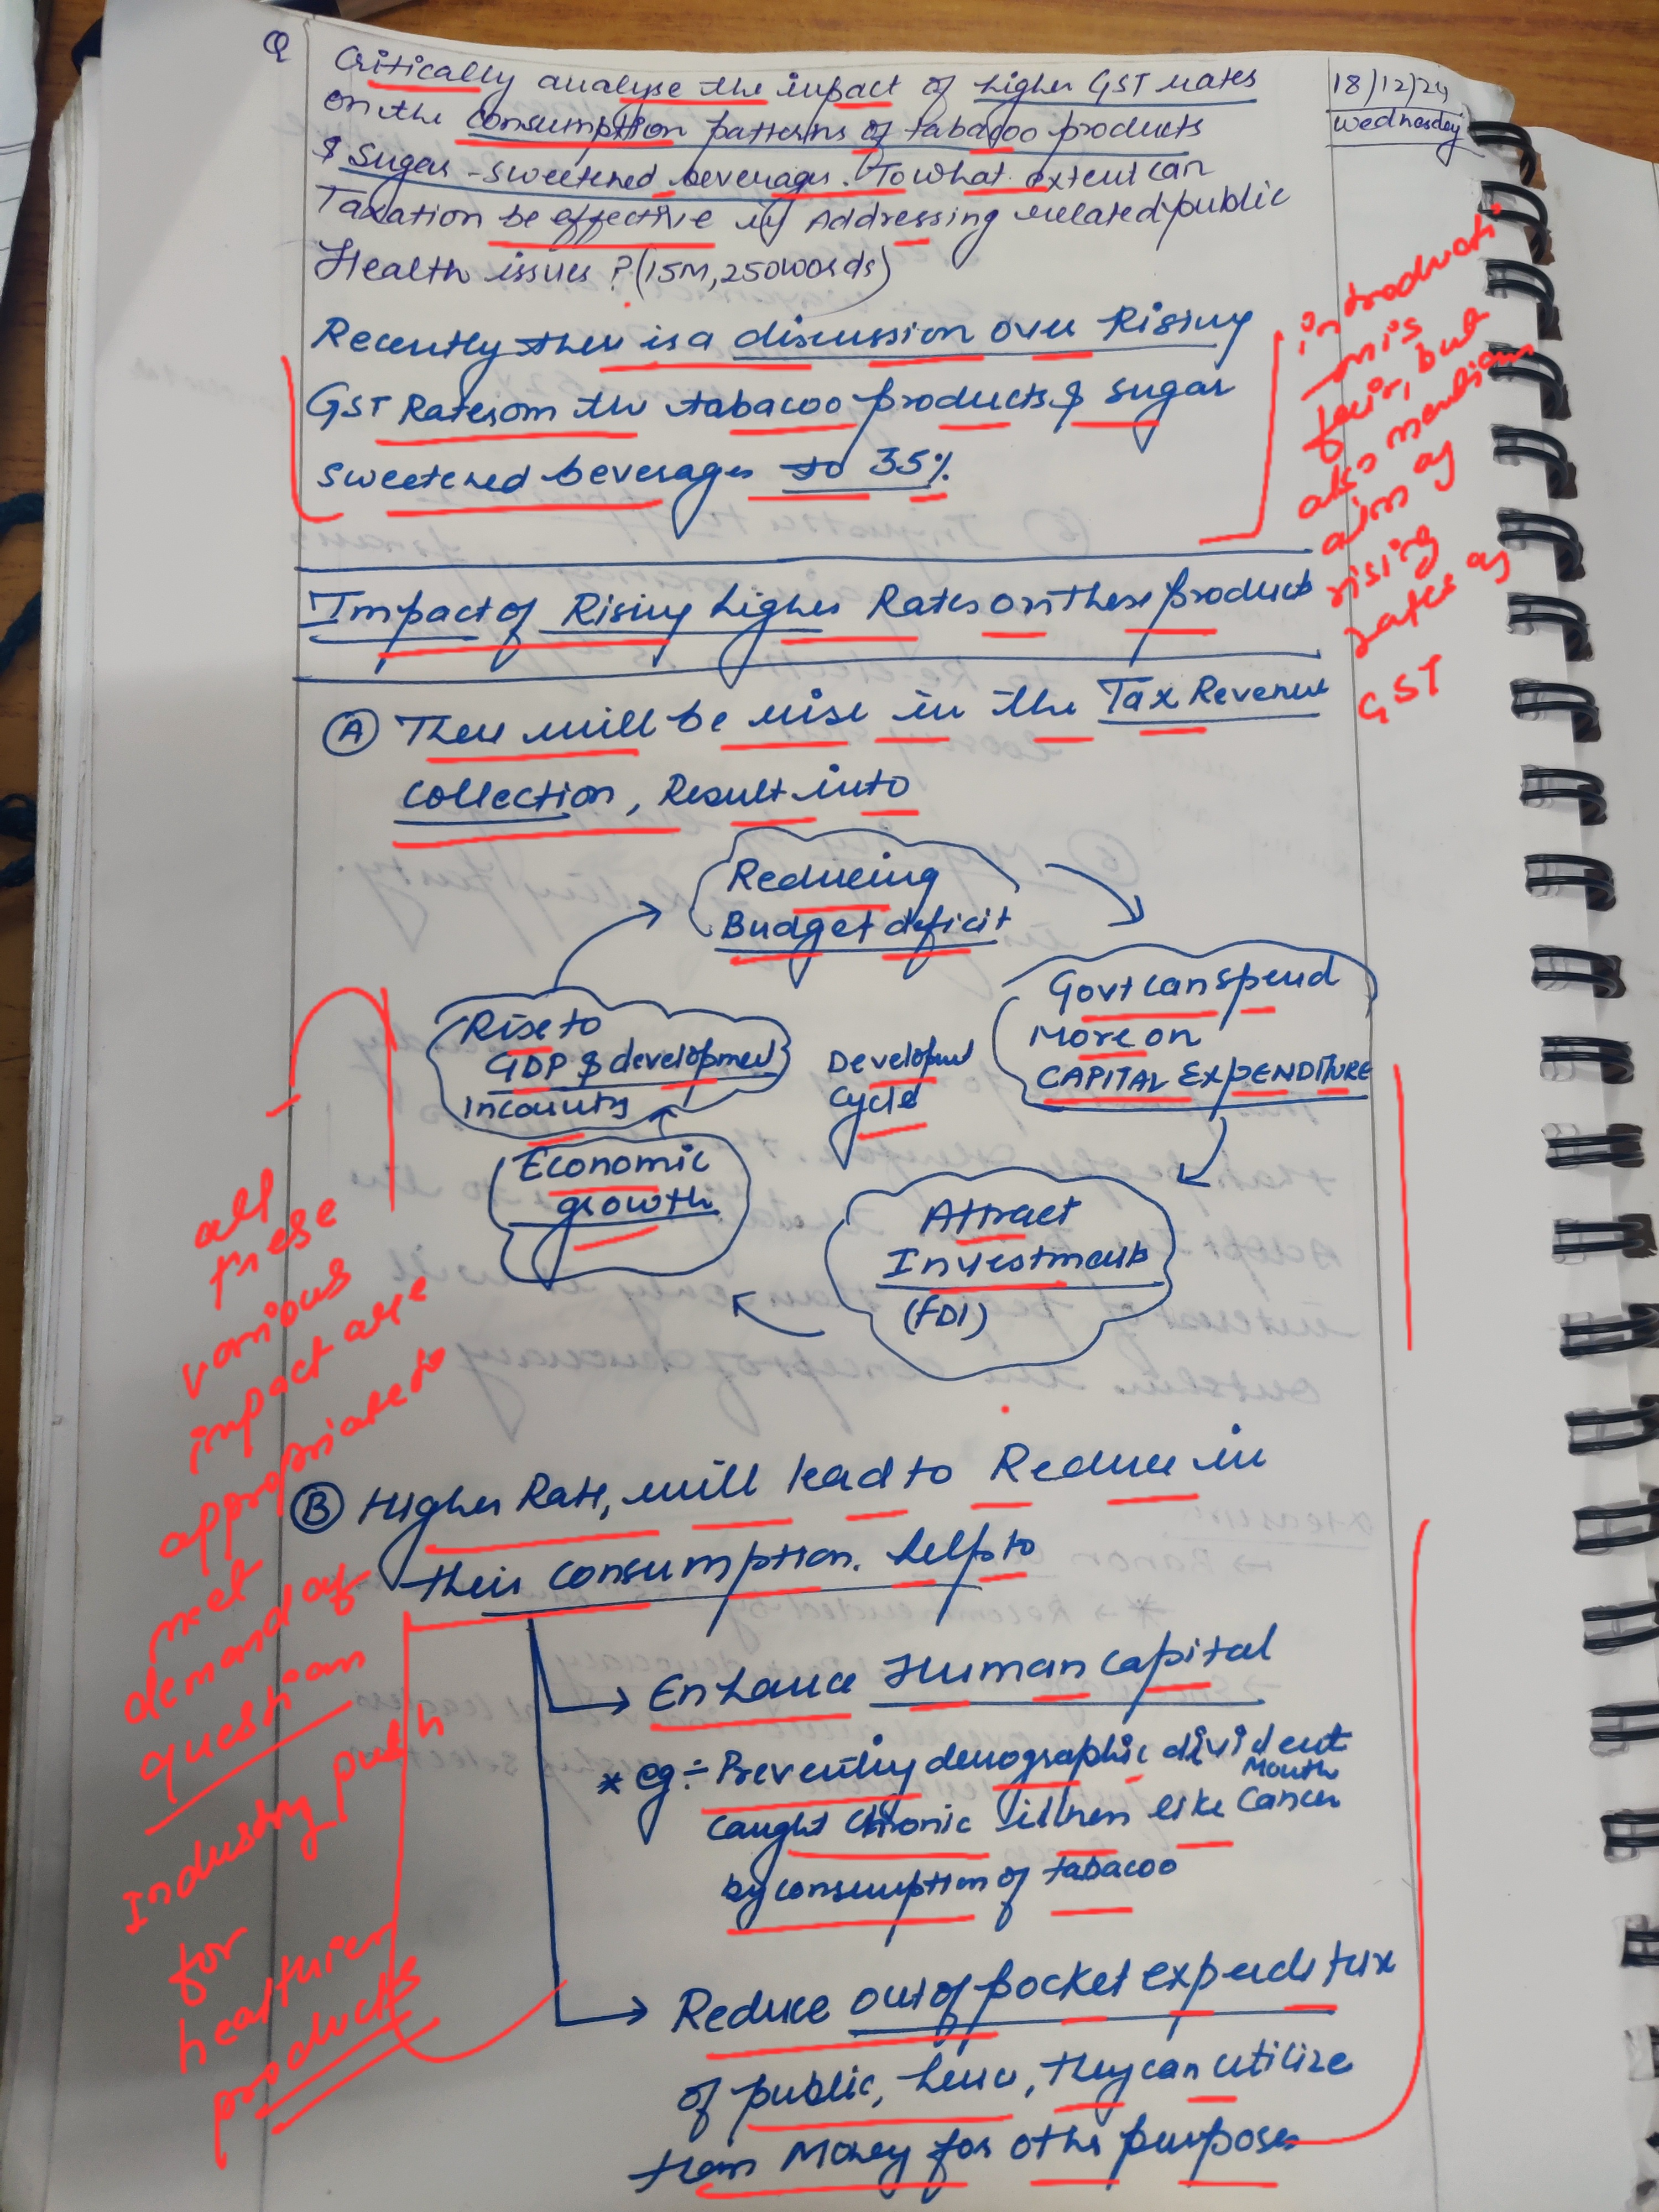 Q
Critically analyse the impact of higher GST rates
on the consumption patterns of tabacoo products
& Sugar-sweetened beverages. To what extent can
Taxation be effective in Addressing related public
Health issues? (15M, 250words)
18/12/24
Wednesday
Recently there is a discussion over Rising
GST Rates on the tabacoo products & sugar
sweetened beverages to 35%
introducti
on is
fair, but
also mention
aim of
rising
rates of
GST
Impact of Rising higher Rates on these product
(A) There will be rise in the Tax Revenue
collection, Result into
Reducing
Budget deficit
Govt can spend
More on
CAPITAL EXPENDITURE
Rise to
GDP & development
in country
Development
Cycle
Economic
growth
Attract
Investments
(FDI)
all
these
various
impact are
appropriate to
met
demand of
question
Industry push
for
healthier
products
(B) Higher Rate, will lead to Reduce in
their consumption. helps to
Enhance Human capital
* eg:- Preventing demographic divident
caught chronic illness like Mouth Cancer
by consumption of tabacoo
Reduce out of pocket expenditure
of public, hence, they can utilize
their Money for other purposes